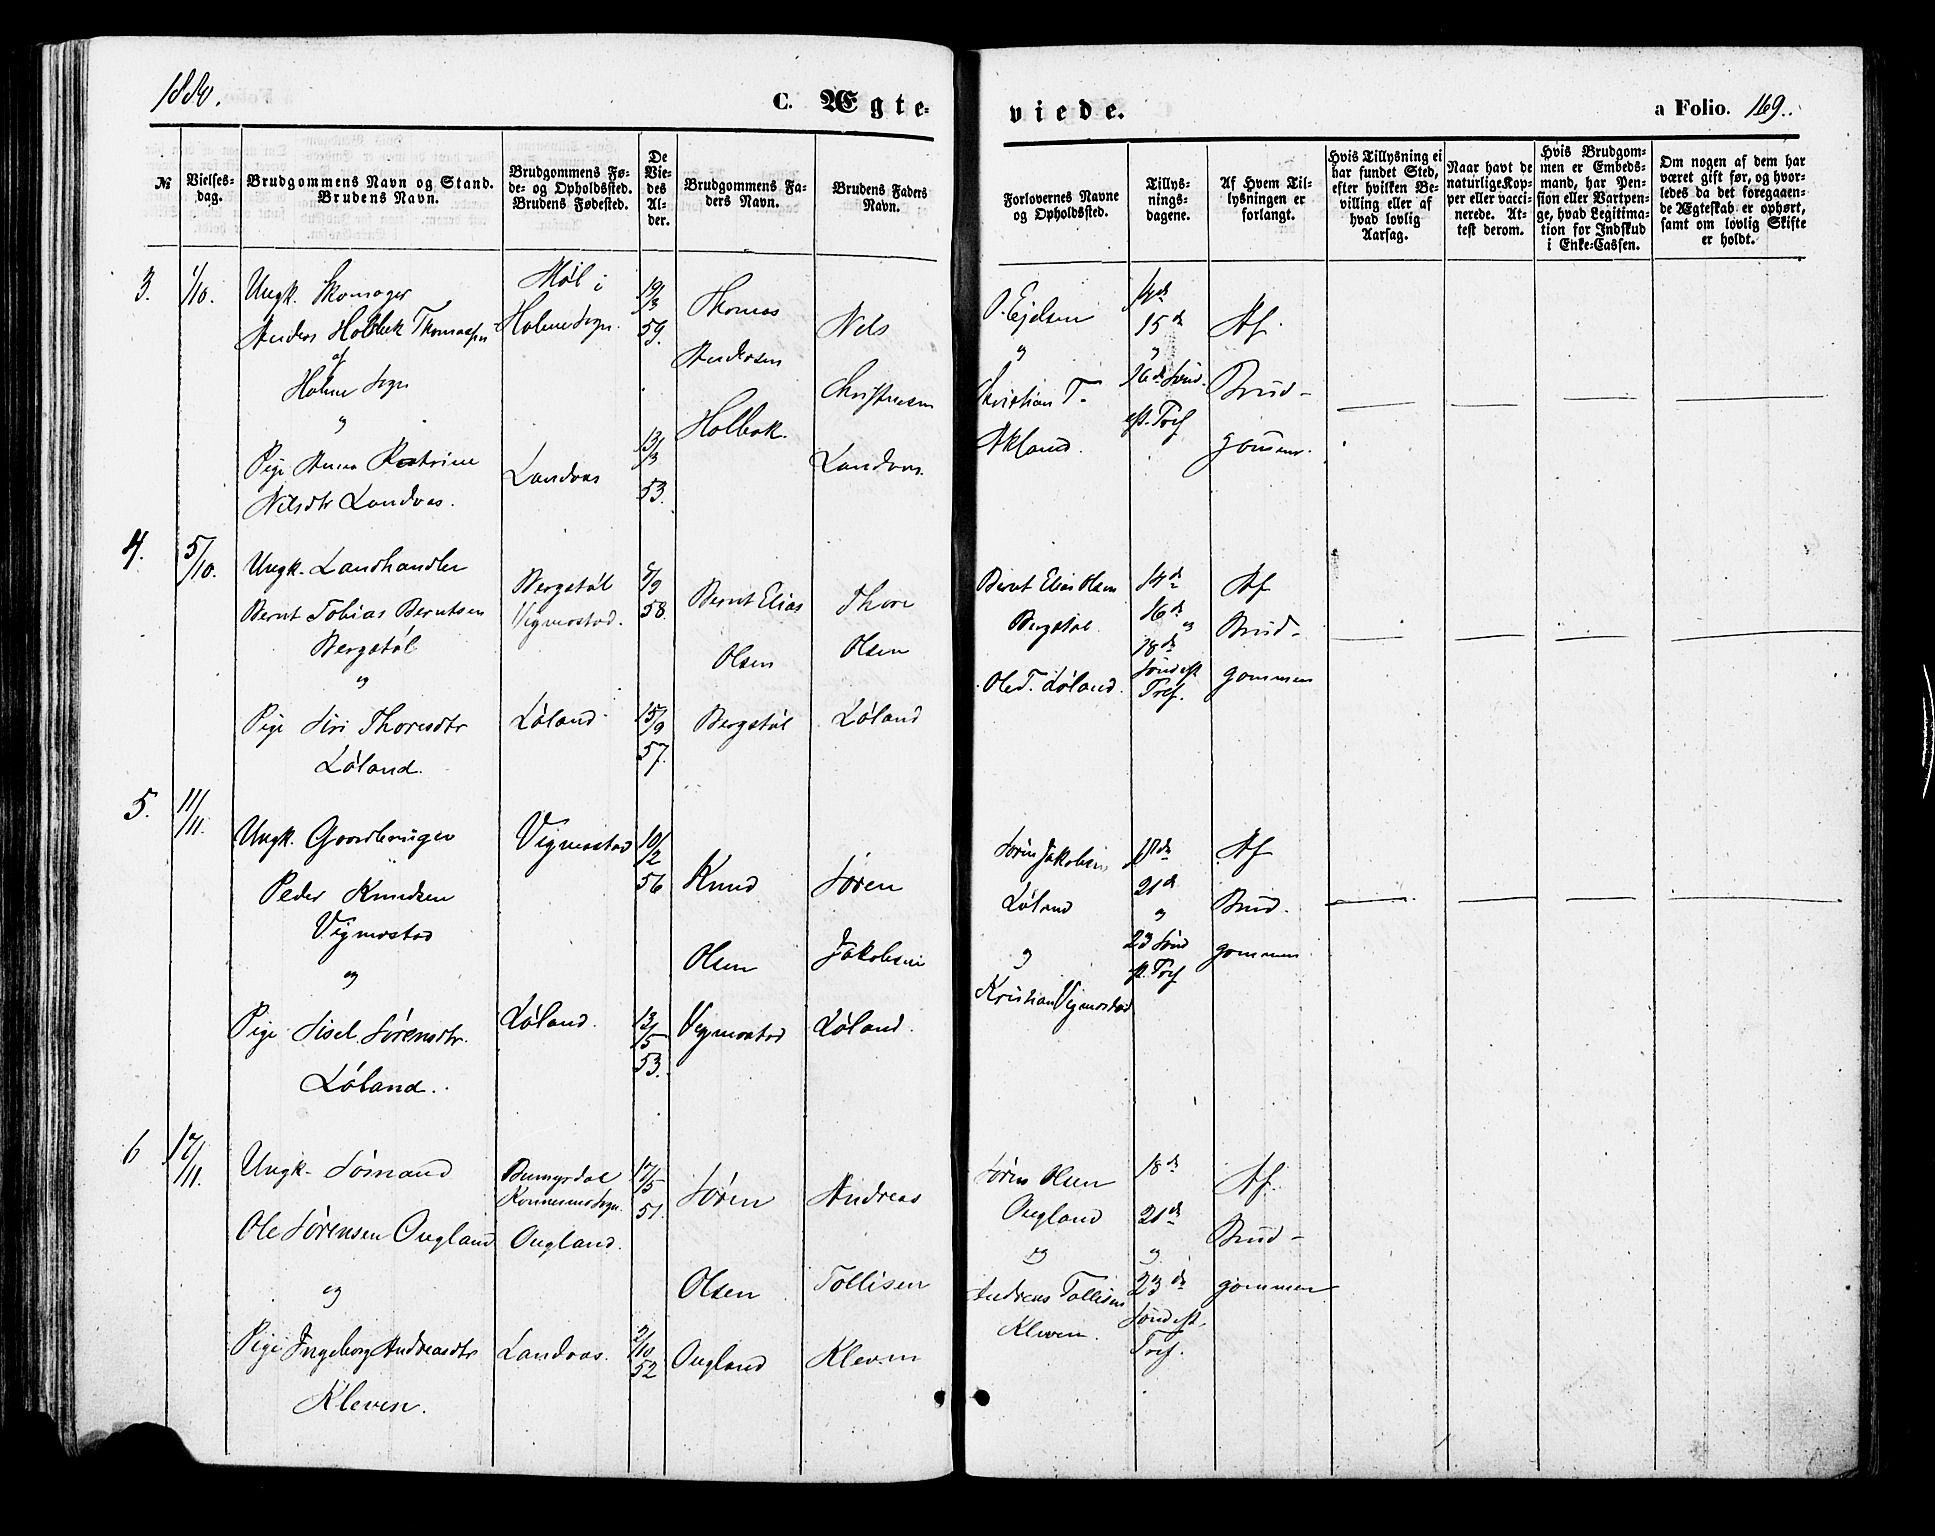 1880.
C. Ægte-
viede.
a Folio. 169.
№
Vielses-
dag.
Brudgommens Navn og Stand.
Brudens Navn.
Brudgommens Fø-
de- og Opholdssted.
Brudens Fødested.
De
Vie-
des
Al-
der.
Brudgommens Fa-
ders Navn.
Brudens Faders
Navn.
Forlovernes Navne
og Opholdssted.
Tillys-
nings-
dagene.
Af Hvem Til-
lysningen er
forlangt.
Hvis Tillysning ei
har fundet Sted,
efter hvilken Be-
villing eller af
hvad lovlig
Aarsag.
Naar havt de
naturlige Kop-
per eller vacci-
nerede. At-
test derom.
Hvis Brudgom-
men er Embeds-
mand, har Pen-
sion eller Vartpen-
ge, hvad Legitima-
tion for Indskud
i Enke-Cassen.
Om nogen af dem har
været gift før, og hvor-
ledes da det foregaaen-
de Ægteskab er ophørt,
samt om lovlig Skifte
er holdt.
3.
1/10.
Ungk. Skomager
Anders Holbek Thomassen
af
Holme Sogn
og
Pige Anna Katrine
Nilsdtr Landaas.
Møl i
Holme Sogn.
Landaas
19/3
59.
13/3
53.
Thomas
Andersen
Holbek.
Nels
Christensen
Landaas.
O. Ejelsen
og
Kristian T.
Åkland.
14de
15de
og
16de Sønd.
eft. Tref
Af
Brud-
gommen.
4.
5/10.
Ungk. Landhandler
Bernt Tobias Berntsen
Bergstøl
og
Pige Siri Thoresdtr
Løland.
Bergstøl
Vigmostad.
Løland.
5/9
58.
15/9
57.
Bernt Elias
Olsen
Bergstøl
Thore
Olsen
Løland
Bernt Elias Olsen
Bergstøl.
Ole T. Løland.
14de
16de og
18de
Sønd eft
Tref.
Af
Brud-
gommen
5.
11/11.
Ungk. Gaardbruger
Peder Knudsen
Vigmostad
og
Pige Sisel Sørensdtr.
Løland.
Vigmostad
Løland.
10/2
56
13/5
53.
Knud
Olsen
Vigmostad
Søren
Jakobsen
Løland.
Søren Jakobsen
Løland
og
Kristian Vigmostad
18de
21de
og
23 Sønd
eft. Tref
Af
Brud-
gommen
6
17/11.
Ungk. Sømand
Ole Sørensen Øugland
og
Pige Ingeborg Andreasdtr
Kleven.
Konnesms Sogn.
Øugland.
Landaas.
17/5
51.
2/10
52
Søren
Olsen
Øugland
Andreas
Tollisen
Kleven
Søren Olsen
Øugland
og
Andreas Tollisen
Kleven.
18de
21de
og
23de
Sønd eft.
Tref.
Af
Brud-
gommen